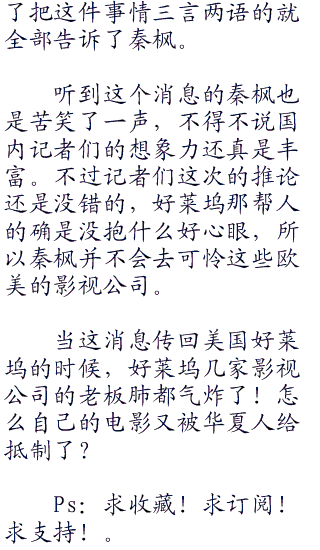 了把这件事情三言两语的就
全部告诉了秦枫。
听到这个消息的秦枫也
是苦笑了一声，不得不说国
内记者们的想象力还真是丰
富。不过记者们这次的推论
还是没错的，好菜坞那帮人
的确是没抱什么好心眼，所
以秦枫并不会去可怜这些欧
美的影视公司。
当这消息传回美国好菜
坞的时候，好菜坞几家影视
公司的老板肺都气炸了！怎
么自己的电影又被华夏人给
抵制了？
Ps：求收藏！求订阅！
求支持！。